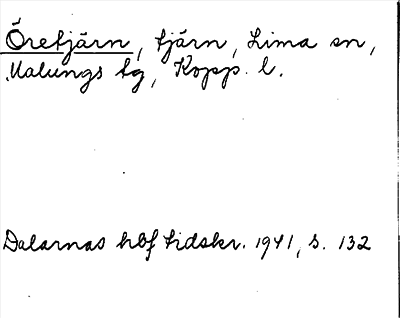 Öretjärn, tjärn, Lima sn,
Malungs tg, Kopp. l.
Dalarnas hbf tidskr. 1941, s. 132